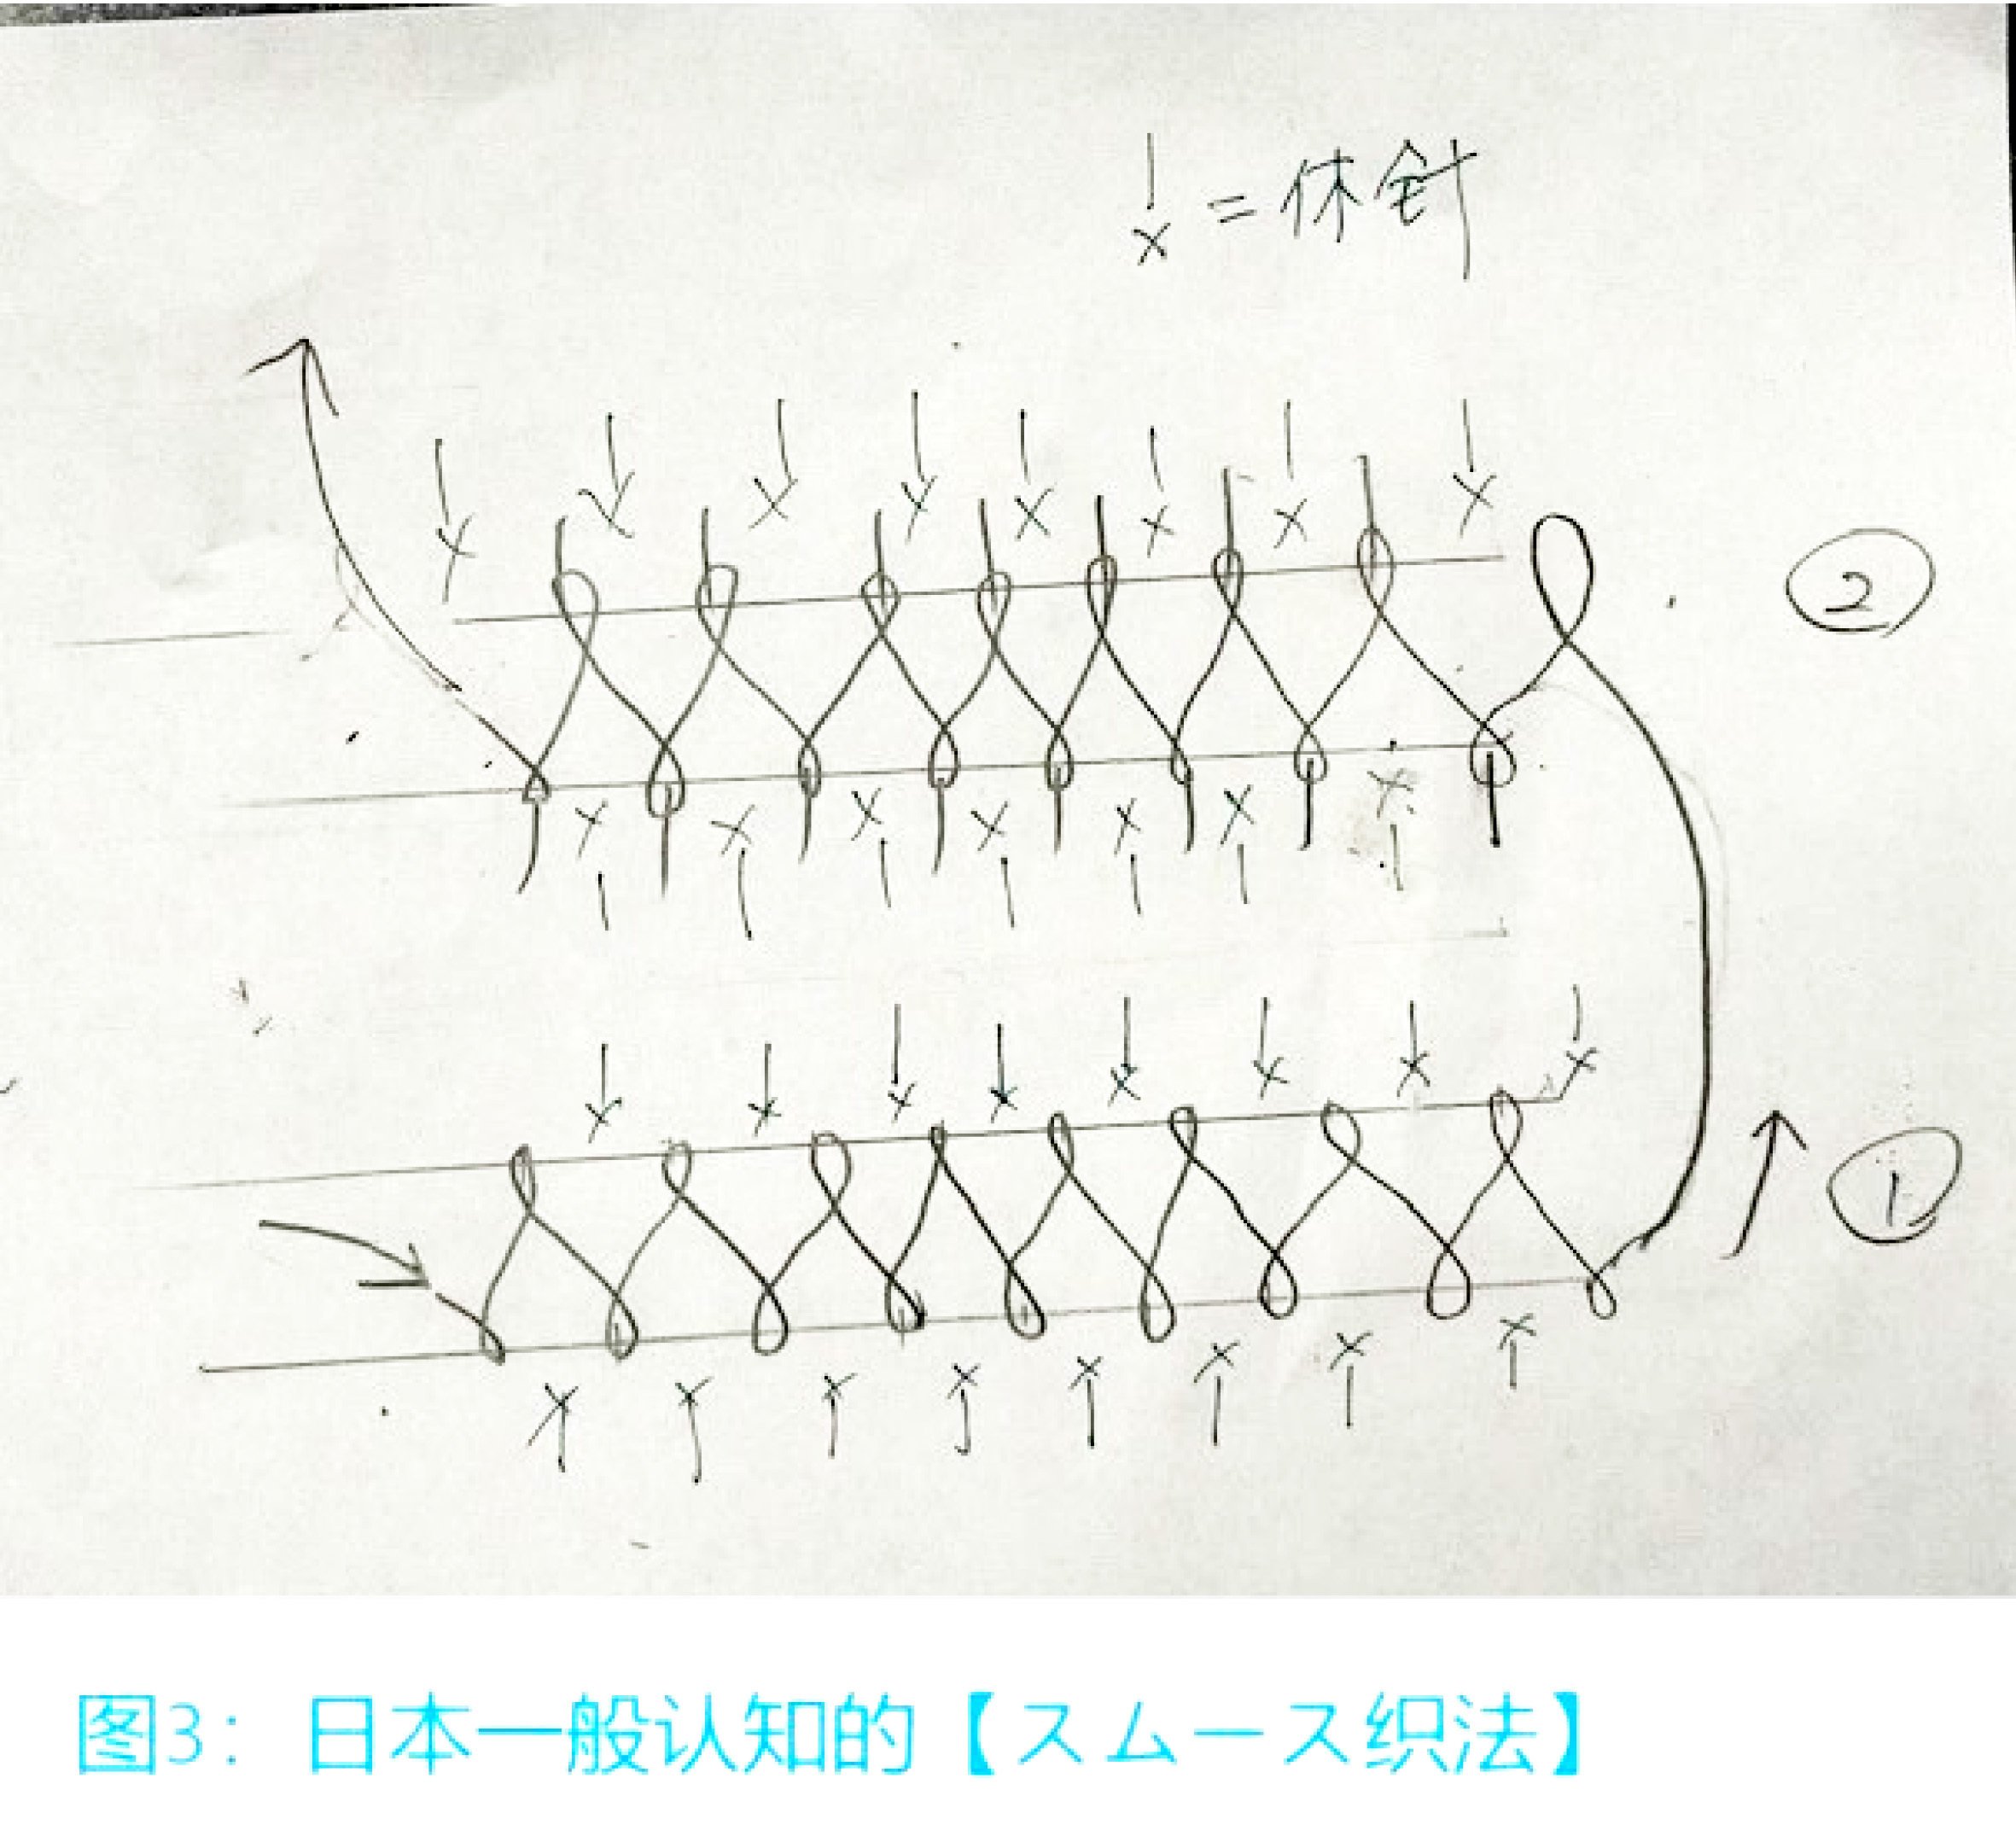 | x = 休針
②
①
图3：日本一般认知的【スムース织法】